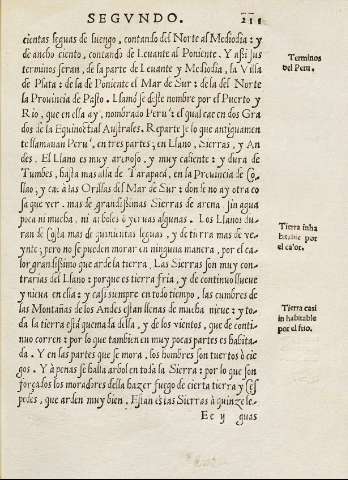 SEGVNDO. 218
cientas leguas de luengo, contando del Norte al Mediodia: y
de ancho ciento, contando de Leuante al Poniente. Y assi sus
terminos seran, de la parte de Leuante y Mediodia, la Villa
de Plata: de la de Poniente el Mar de Sur: de la del Norte
la Prouincia de Pasto. Llamóse deste nombre por el Puerto y
Rio, que en ella ay, nombrado Peru': el qual cae en dos Gra
dos de la Equinoctial Australes. Reparte se lo que antiguamen
te llamauan Peru', en tres partes, en Llano, Sierras, y An
des. El Llano es muy arenoso, y muy caliente: y dura de
Tumbes, hasta mas alla de Tarapacá, en la Prouincia de Co
llao, y cae à las Orillas del Mar de Sur: donde no ay otra co
sa que ver, mas de grandissimas Sierras de arena, sin agua
poca ni mucha, ni arboles o yeruas algunas. Los Llanos du
ran de Costa mas de quinientas leguas, y de tierra mas de ve
ynte; pero no se pueden morar en ninguna manera, por el ca
lor grandissimo que arde la tierra. Las Sierras son muy con
trarias del Llano: porque es tierra fria, y de continuo llueue
y nieua en ella: y casi siempre en todo tiempo, las cumbres de
las Montañas de los Andes estan llenas de mucha nieue: y to
da la tierra està quemada della, y de los vientos, que de conti-
nuo corren: por lo que tambien en muy pocas partes es habita-
da. Y en las partes que se mora, los hombres son tuertos ò cie
gos. Y à penas se halla arbol en toda la Sierra: por lo que son
forçados los moradores della hazer fuego de cierta tierra y Ces
pedes, que arden muy bien. Estan estas Sierras à quinze le-
Ee y guas
Terminos
del Peru.
Tierra inha
bitable por
el calor.
Tierra casi
inhabitable
por el frio.